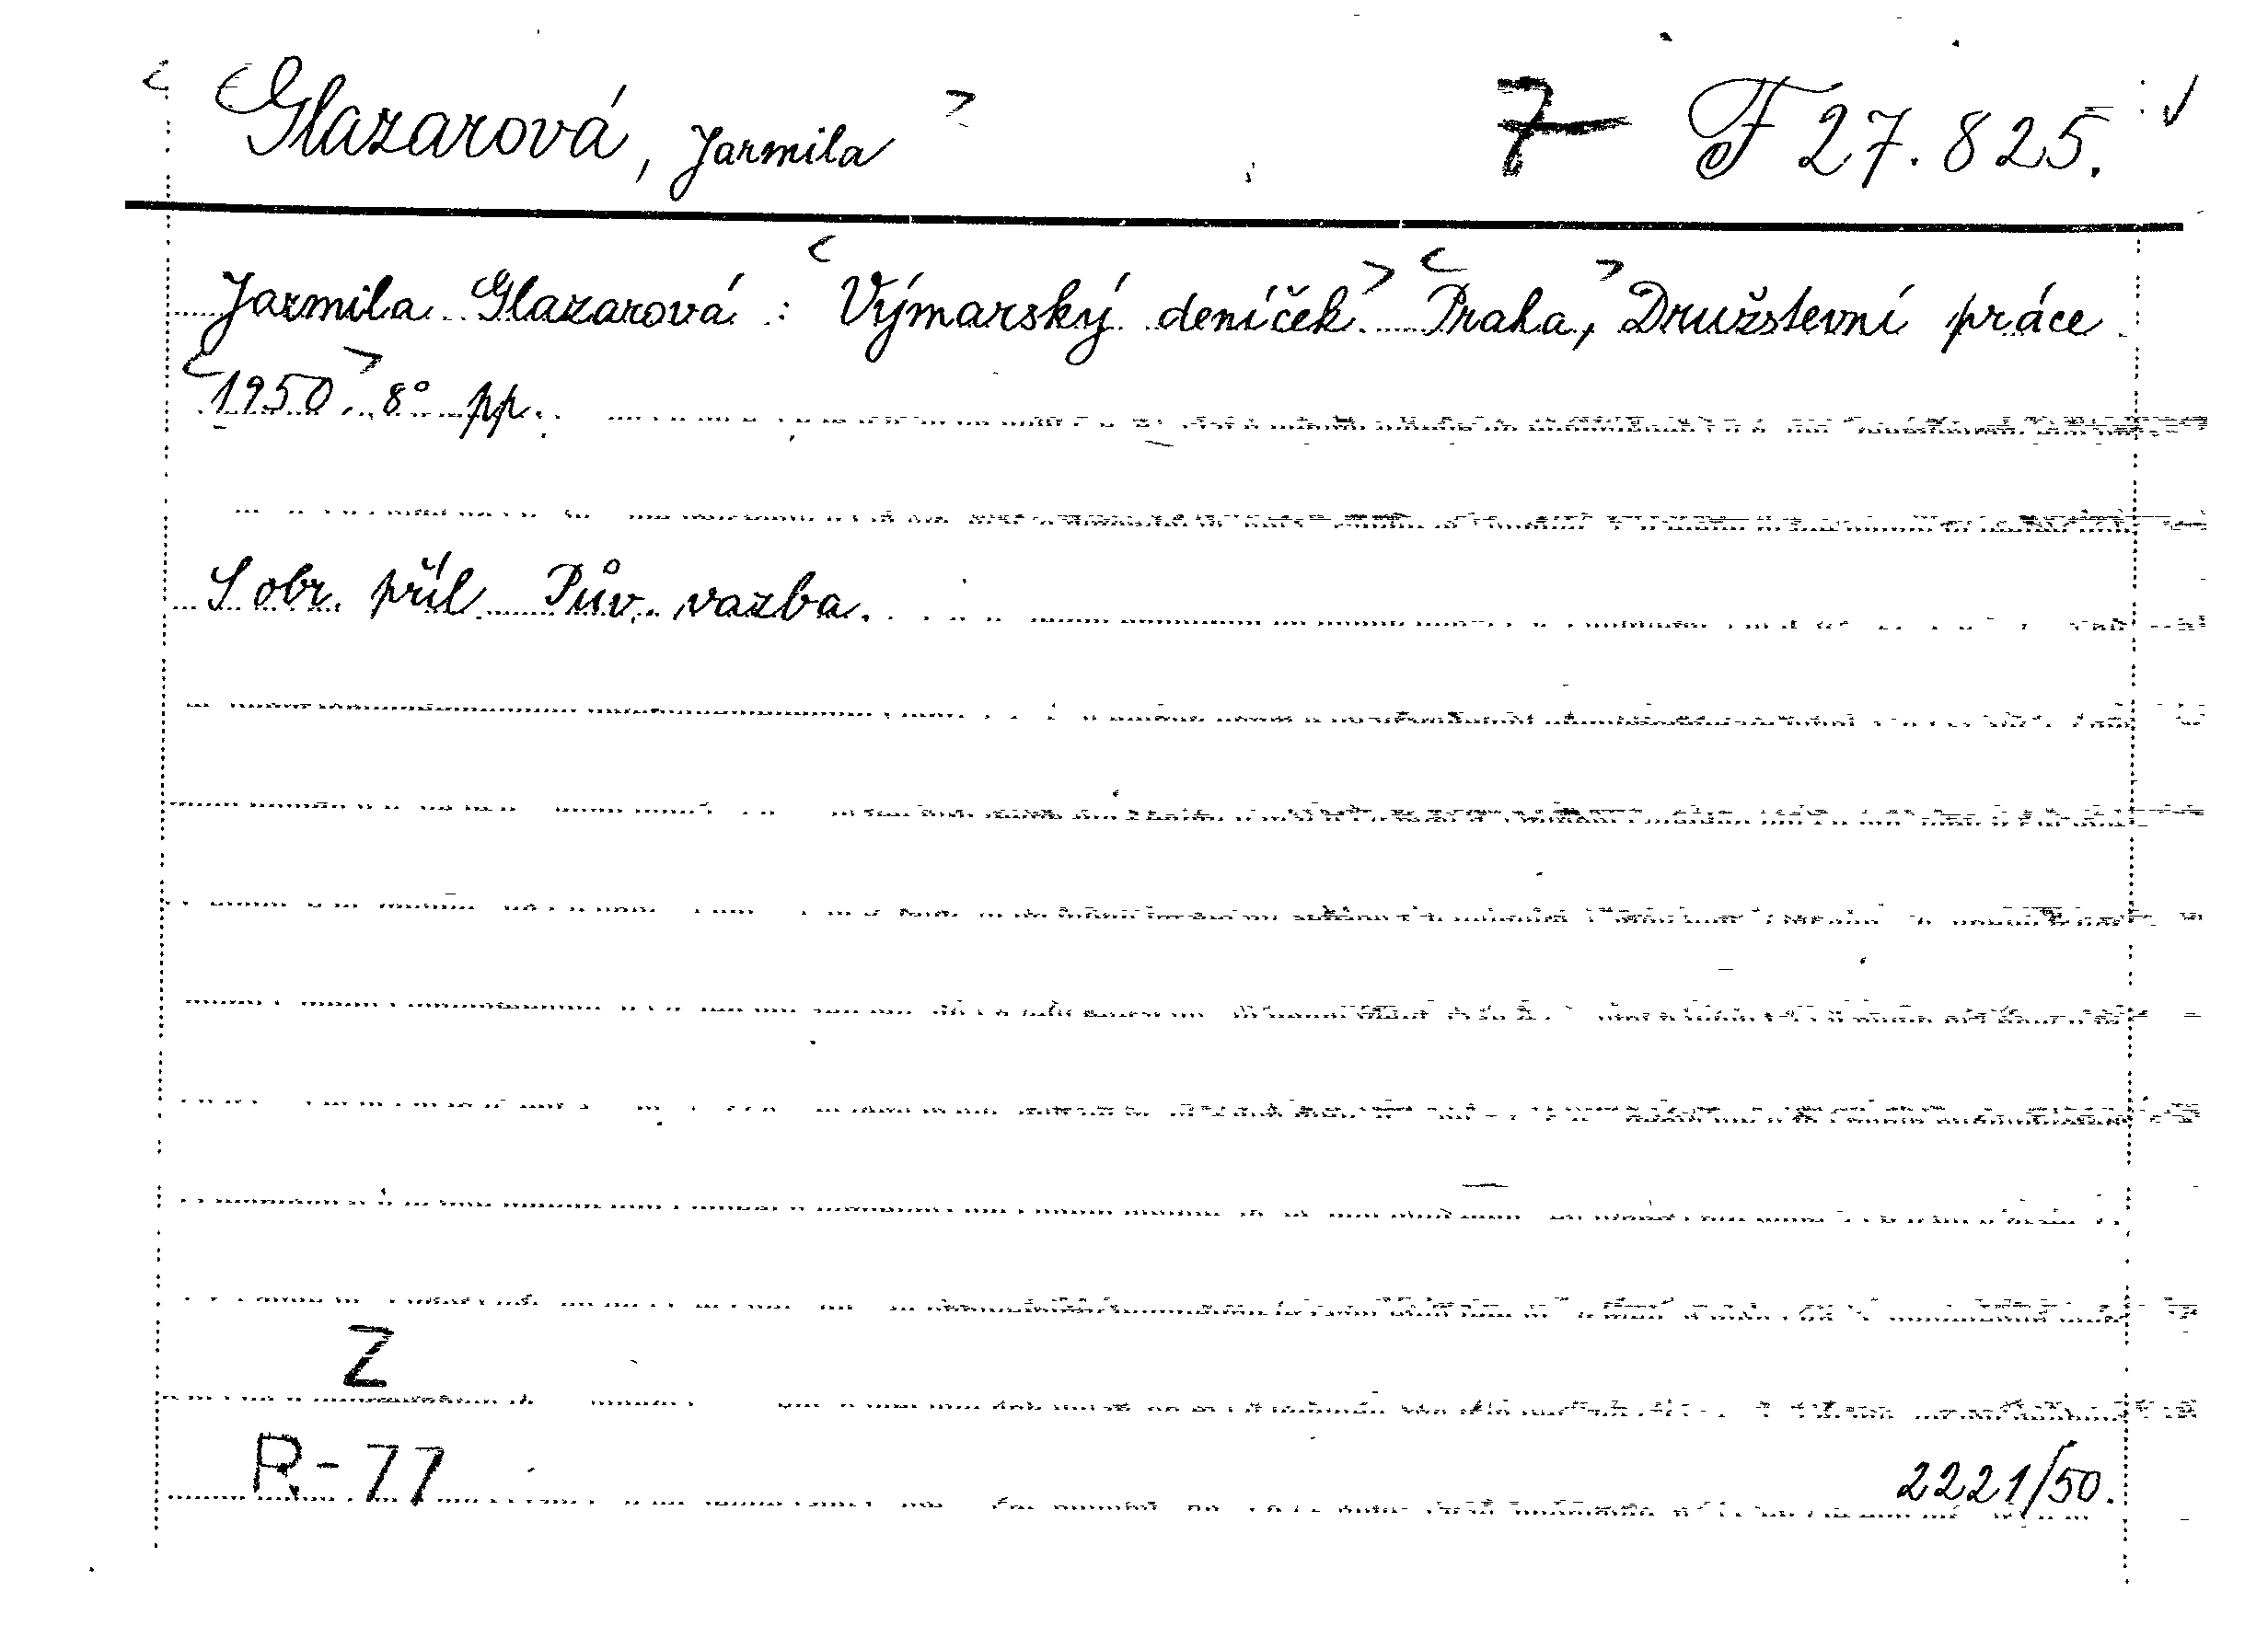 < Glazarová, Jarmila > 7 F 27.825. √
Jarmila Glazarová : <Výmarský deníček.> <Praha,> Družstevní práce
<1950.> 8° pp.
S obr. příl. Pův. vazba.
Z
R-77
2221/50.